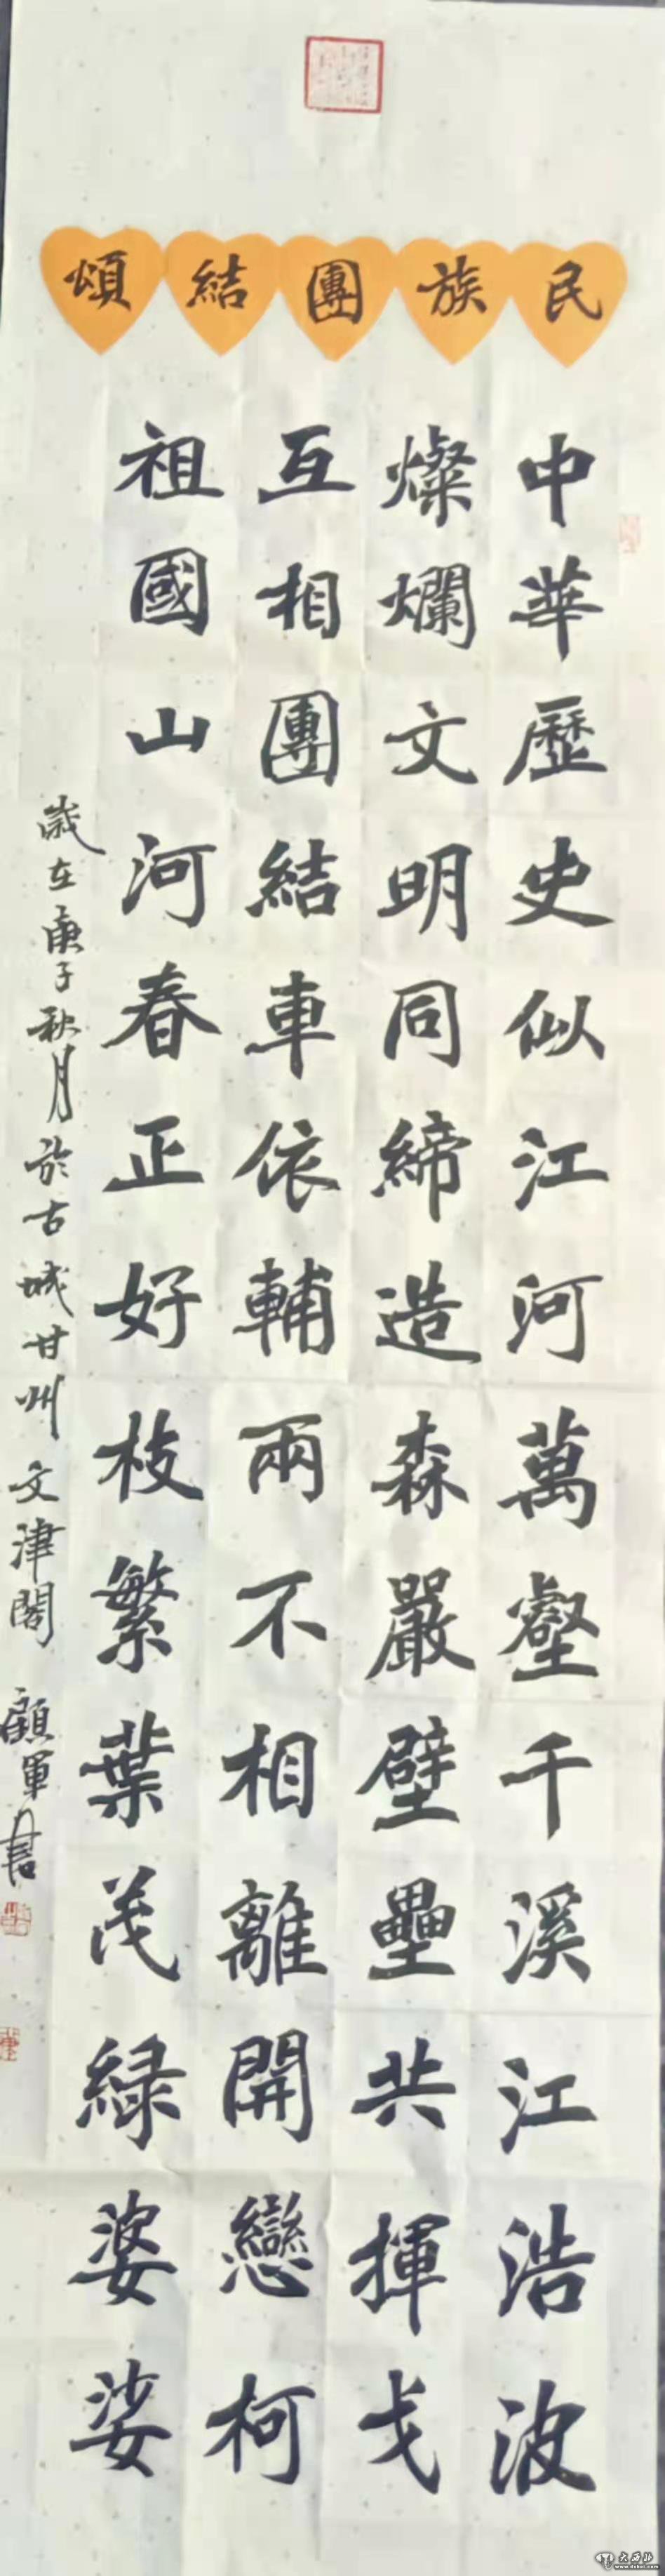 民族團結頌
中華歷史似江河萬壑千溪江浩波
燦爛文明同締造森嚴壁壘共揮戈
互相團結車依輔兩不相離開戀柯
祖國山河春正好枝繁葉茂綠婆娑
歲在庚子秋月於古城甘州文津閣 顧軍書
大西北
www.dxbei.com